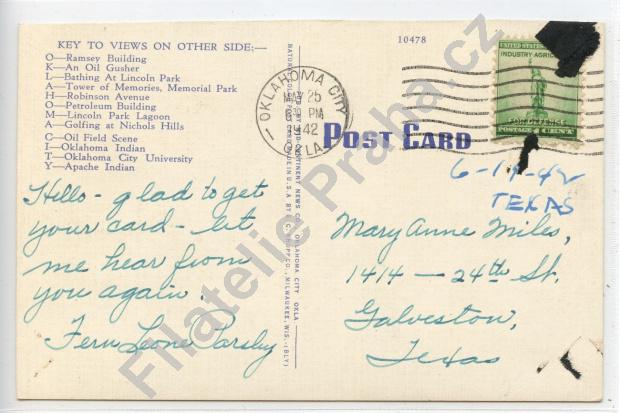 KEY TO VIEWS ON OTHER SIDE:—
O—Ramsey Building
K—An Oil Gusher
L—Bathing At Lincoln Park
A—Tower of Memories, Memorial Park
H—Robinson Avenue
O—Petroleum Building
M—Lincoln Park Lagoon
A—Golfing at Nichols Hills
C—Oil Field Scene
I—Oklahoma Indian
T—Oklahoma City University
Y—Apache Indian
Hello - glad to get
your card - let
me hear from
you again.
Fern Leone Parsley
10478
OKLAHOMA CITY
MAY 25
PM
1942
OKLA.
1
POST CARD
UNITED STATES
INDUSTRY AGRIC
FOR DEFENSE
POSTAGE 1 CENT
6-11-42
TEXAS
Mary Anne Miles,
1414 — 24th St.
Galveston,
Texas
Filatelie Praha.cz